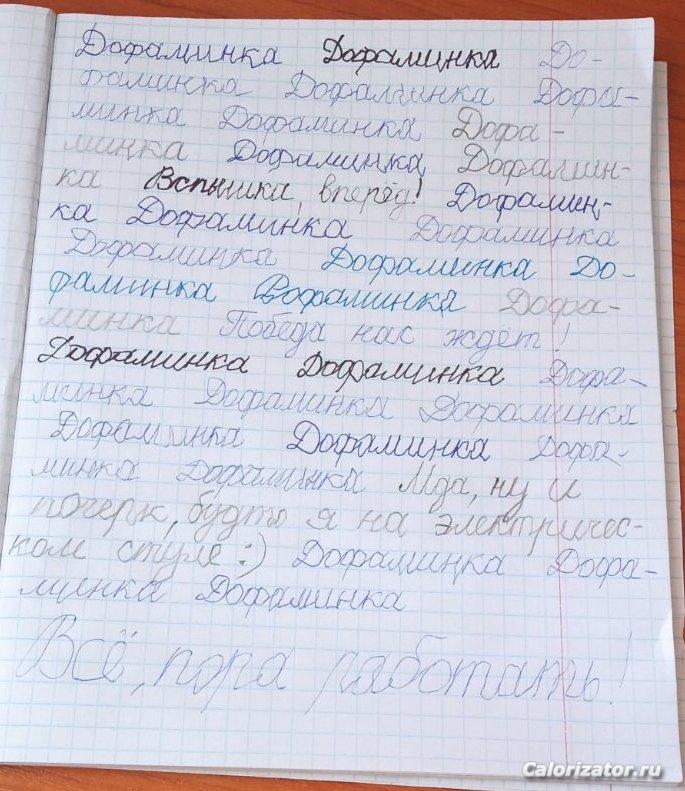 Дофаминка Дофаминка До-
фаминка Дофаминка Дофа-
минка Дофаминка Дофа-
минка Дофаминка Дофамин-
ка Вспышка, вперёд! Дофамин-
ка Дофаминка Дофаминка
Дофаминка Дофаминка До-
фаминка Дофаминка Дофа-
минка Победа нас ждёт!
Дофаминка Дофаминка Дофа-
минка Дофаминка Дофаминка
Дофаминка Дофаминка Дофа-
минка Дофаминка Мда, ну и
почерк, будто я на электричес-
ком стуле :) Дофаминка Дофа-
минка Дофаминка
Всё, пора работать!
Calorizator.ru